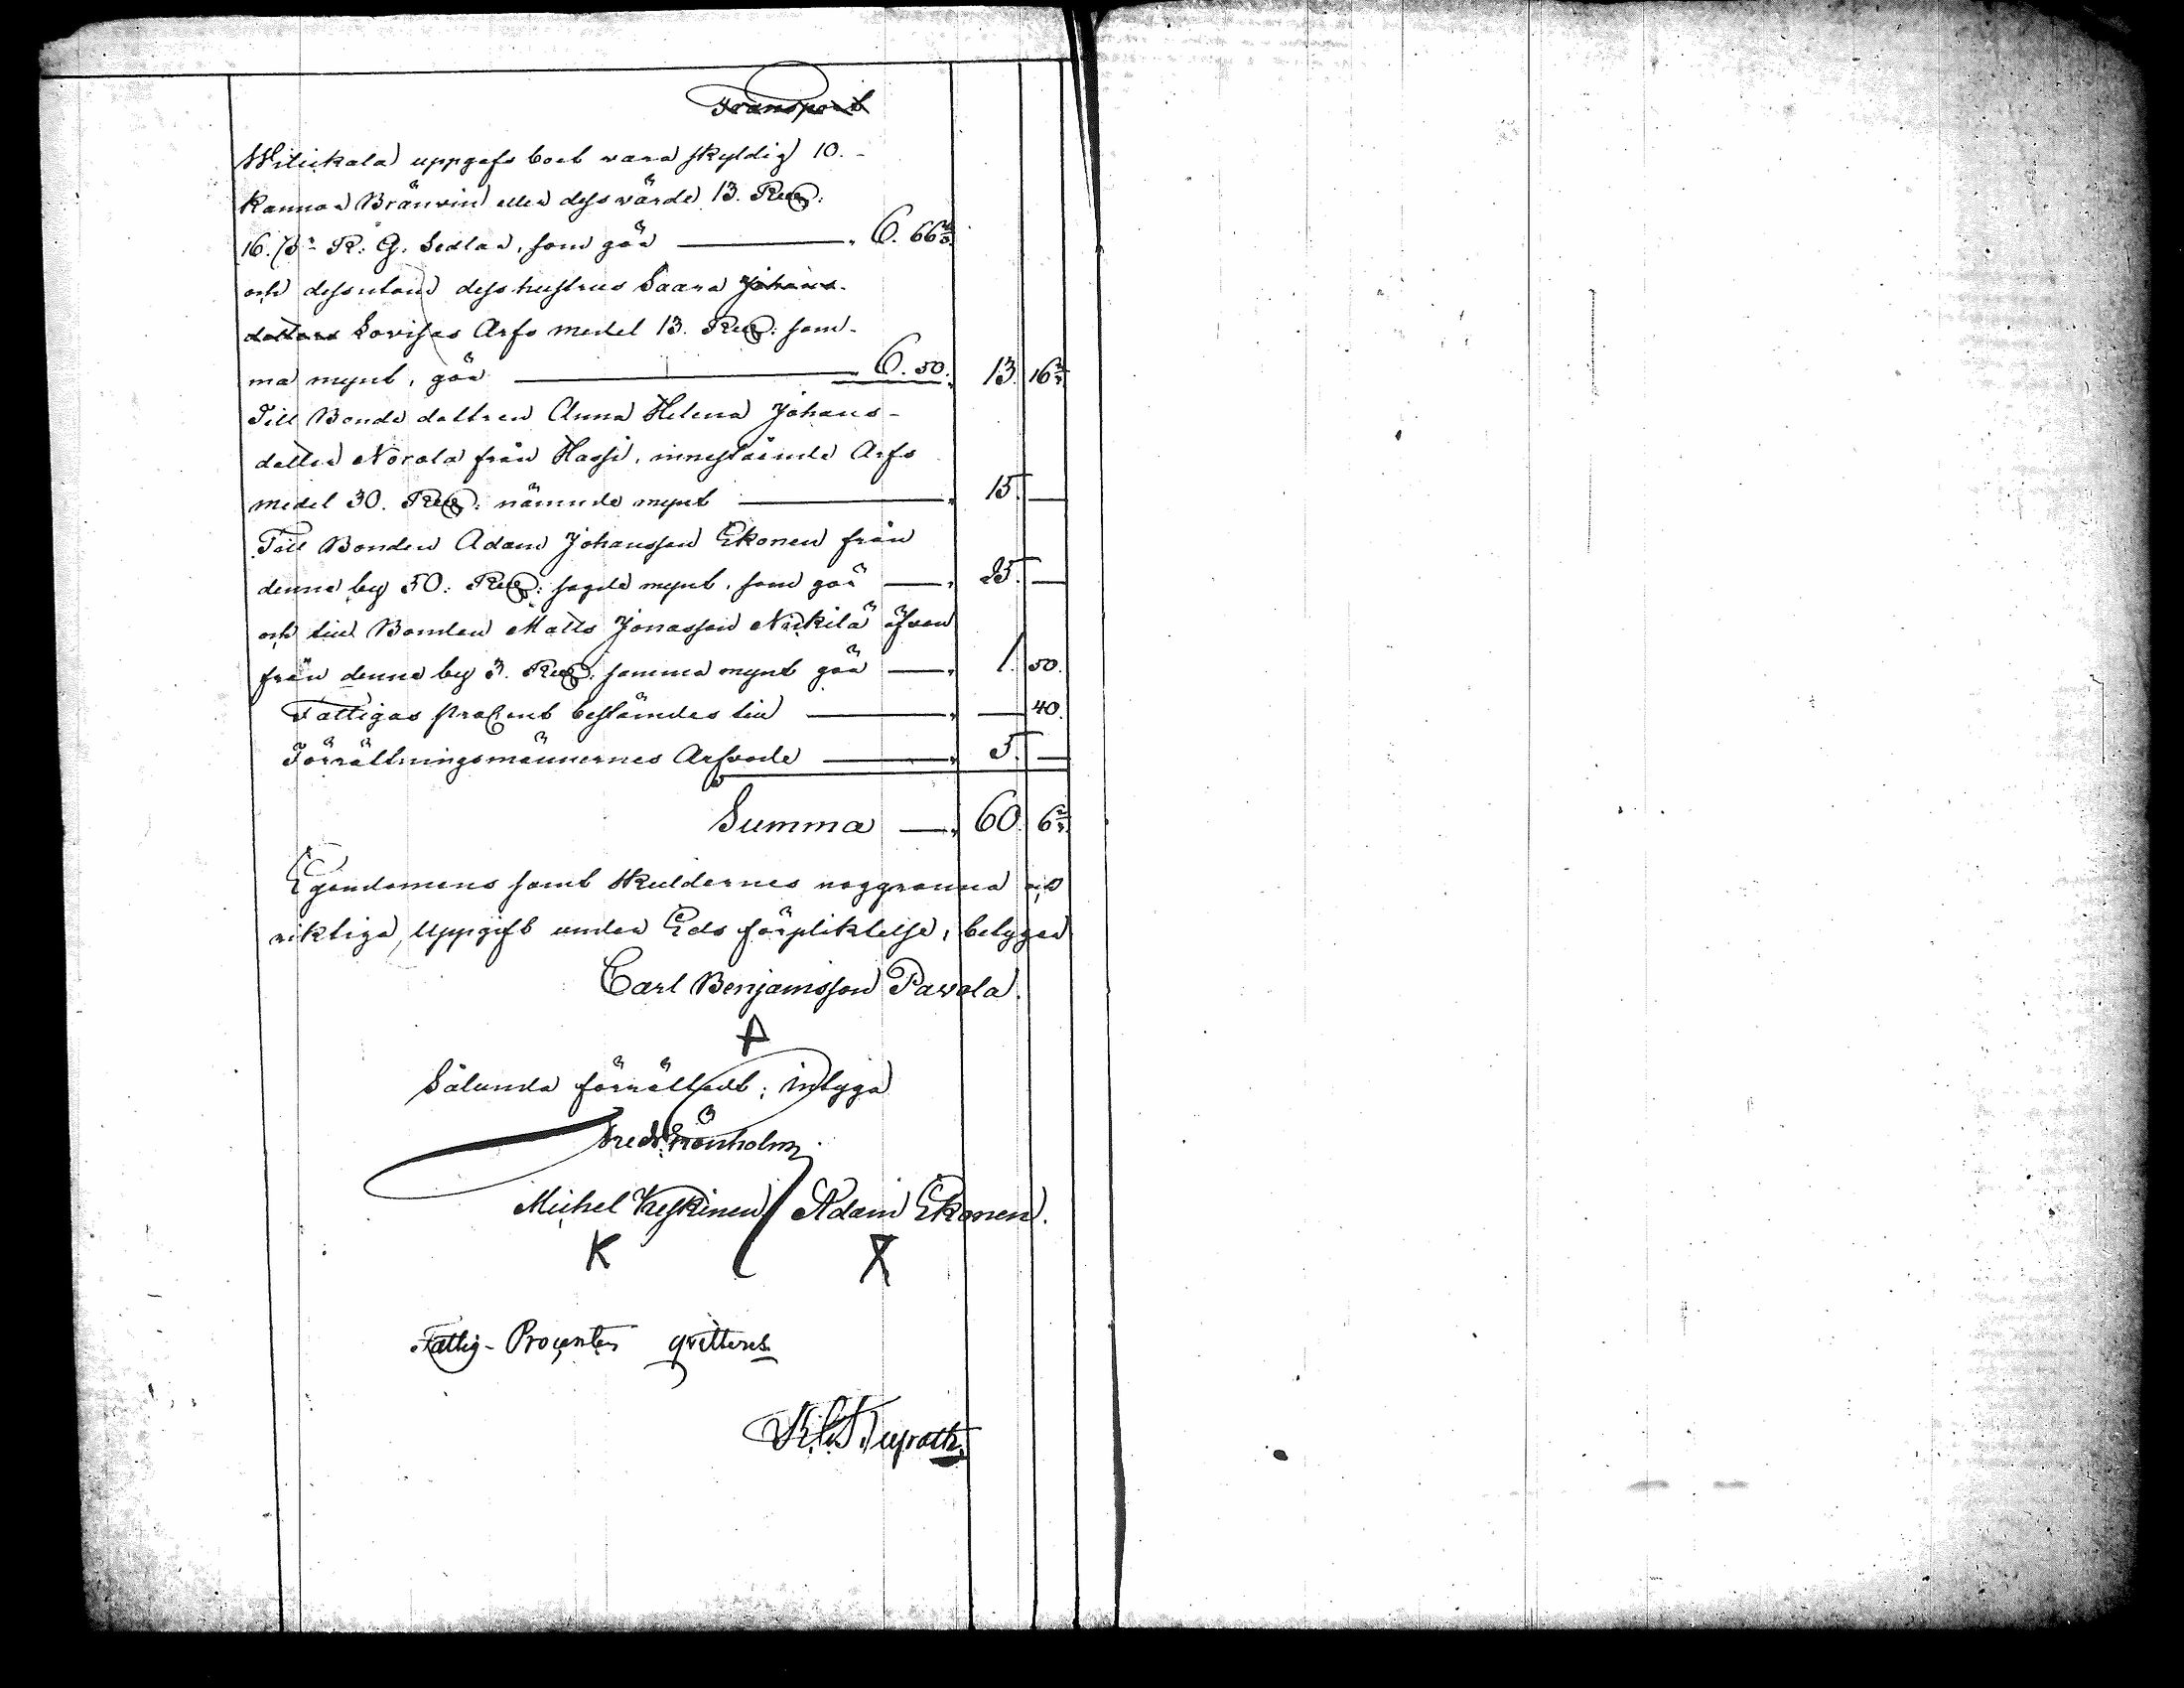 Transport
Wiliekala uppgafs boet vara skyldig 10.-
kannor Bränvin eller dess värde 13. RD:
16. sk: R. G. Sedlar, som gör — " 6. 66 2/3.
och dessutom dess hustrus Saara Johans-
dotters Lovisas Arfs medel 13. RD: sam-
ma mynt, gör — " 6. 50. " 13. 16 2/3.
Till Bonde dottren Anna Helena Johans-
dotter Norola från Hassi, innestående Arfs
medel 30. RD: nämnde mynt — " 15. —
Till Bonden Adam Johansson Ekonen från
denne by 50: RD: sagde mynt, som gör — " 25. —
och till Bonden Matts Jonasson Niekilä äfven
från denne by 3. RD: samma mynt gör — " 1. 50.
Fattigas procent bestämdes till — " — 40.
Förrättningsmännernes Arfvode — " 5. —
Summa — " 60. 6 2/3.
Egendomens samt skuldernes noggranna och
riktiga uppgift under Eds förpliktelse, betygar
Carl Benjamsson Pavola.
Sålunda förrättadt; intyga
Fredr. Grönholm.
Michel Keskinen Adam Ekonen.
K
Fattig-Procenten qvitteres